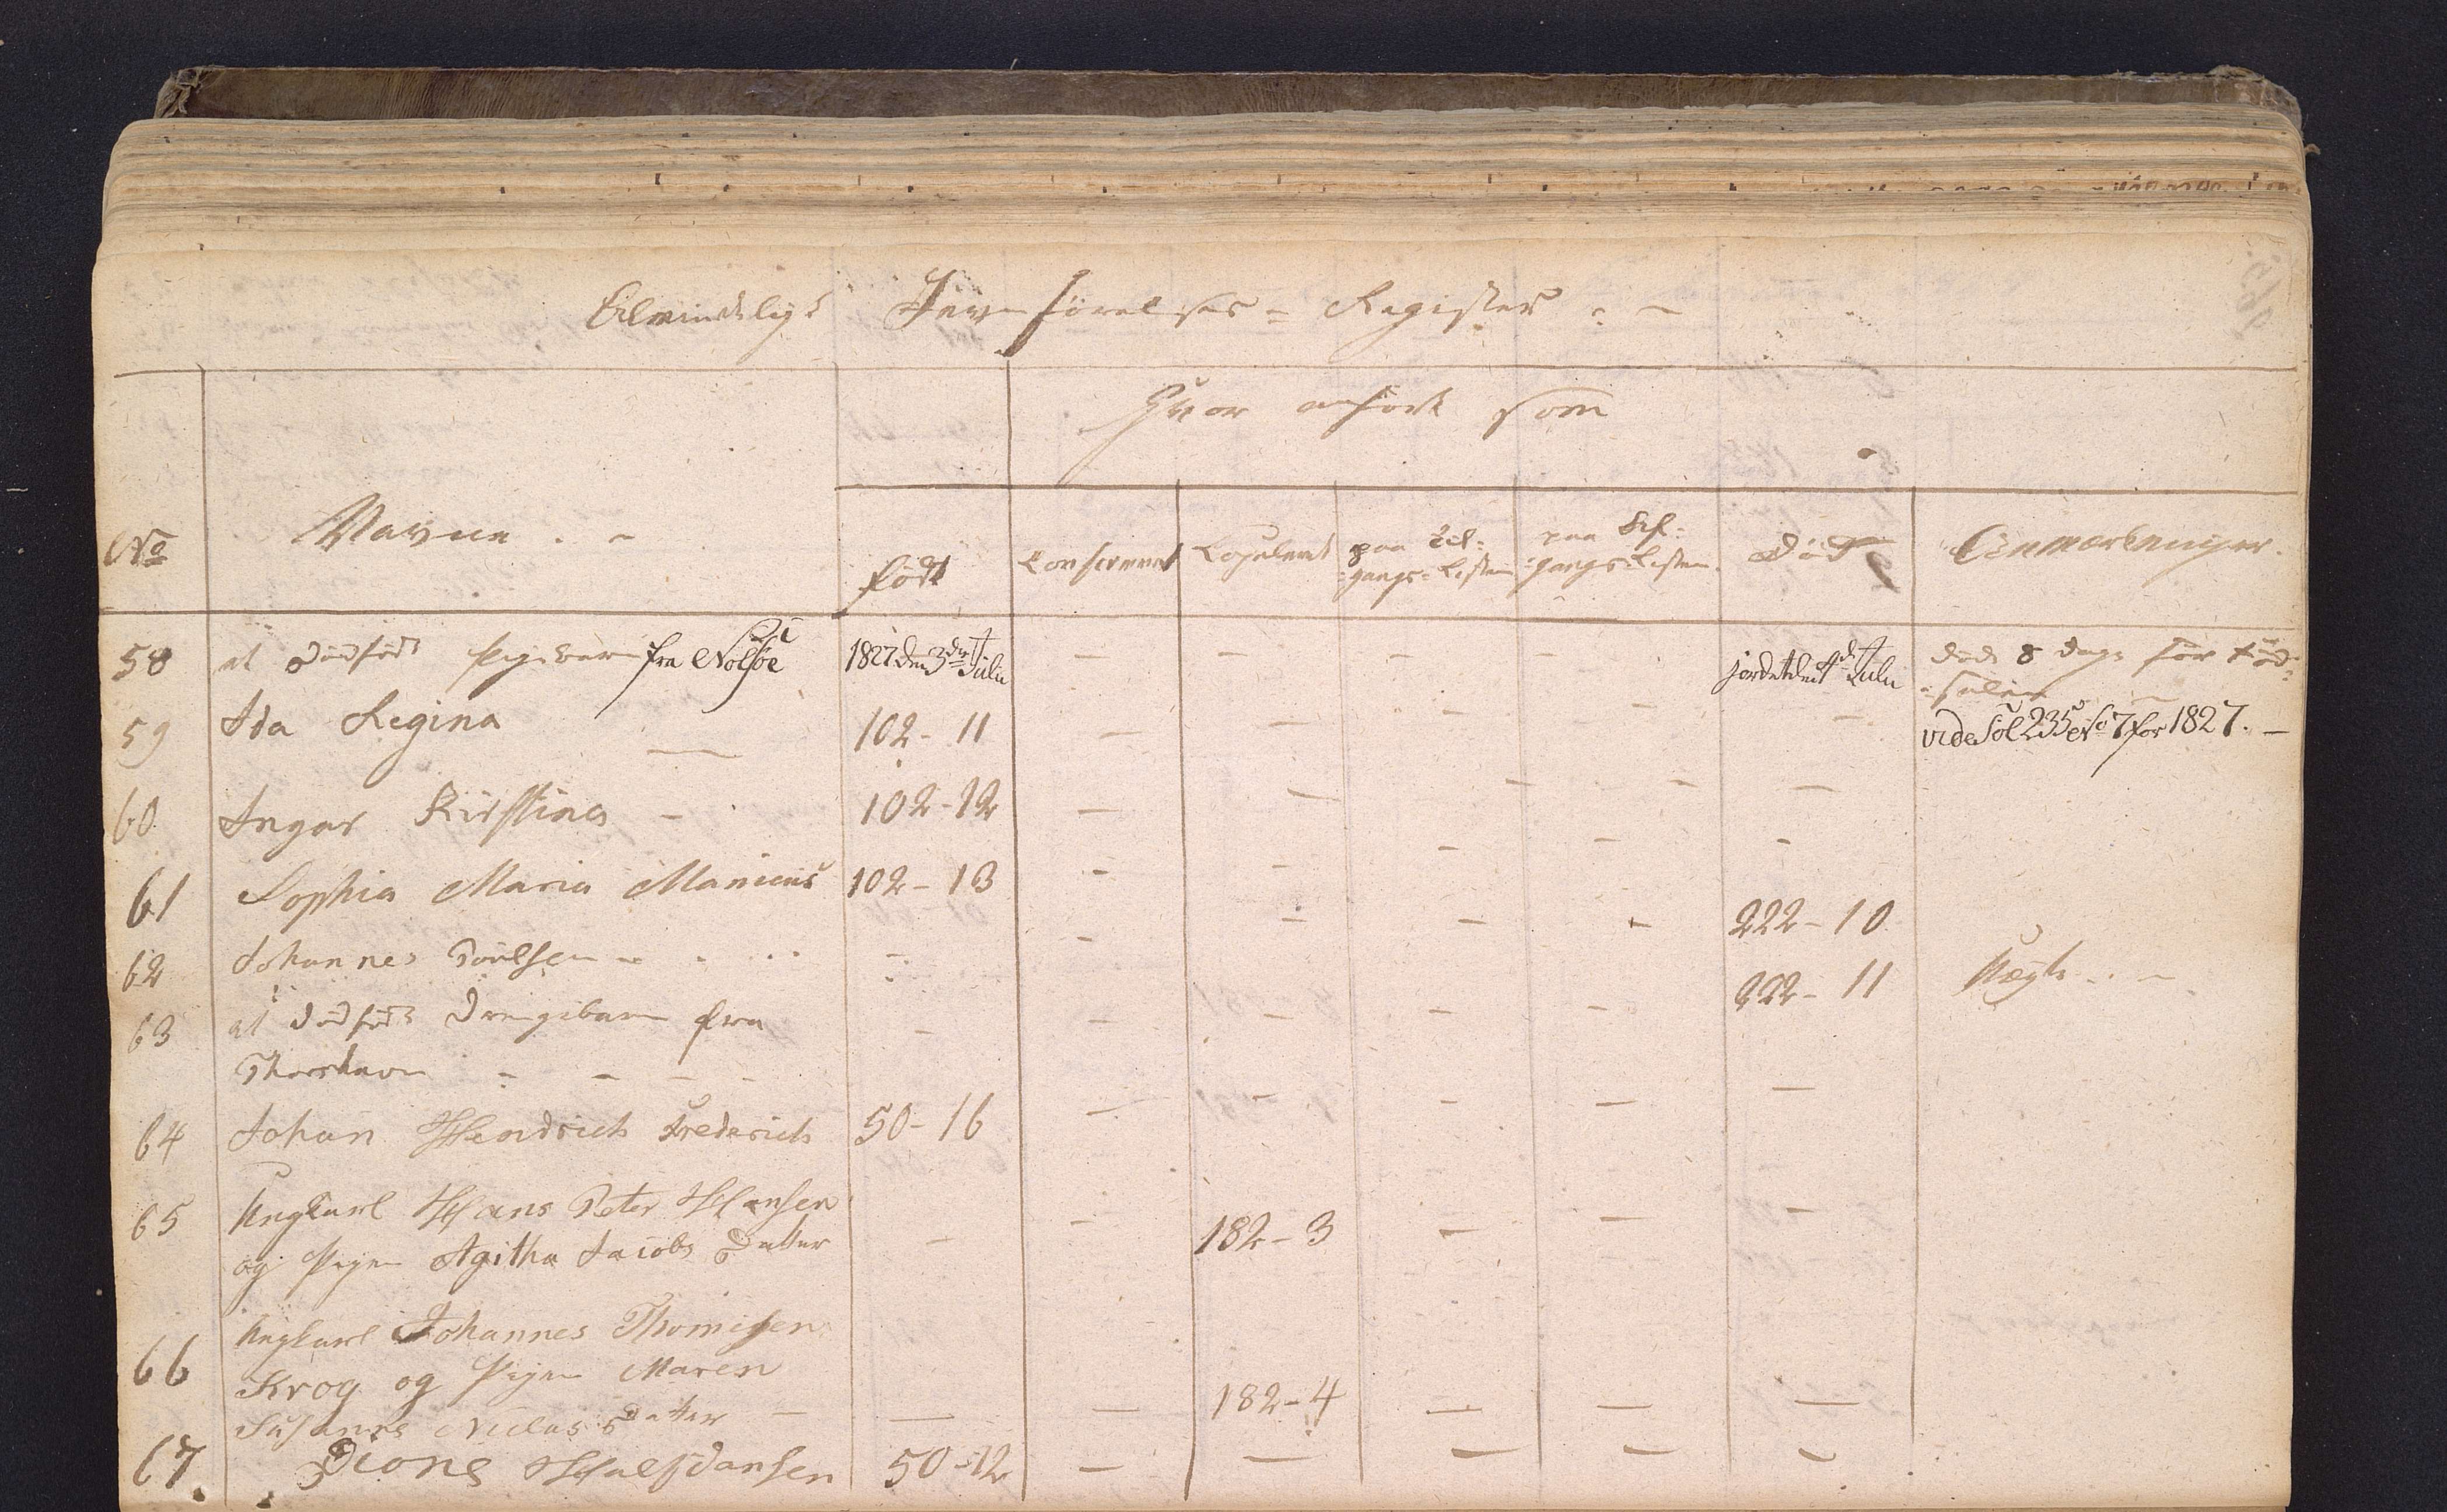 Almindeligt Jevnførelses = Register
Hvor anført som
No Navne født Confirmeret Copuleret paa Til= gangs=Listen paa Af= gangs=Listen Død Anmærkninger.
58 et dødfødt Pigebarn fra Nolsøe 1827 den 3die Julii — — — — jordet den 4de Julii døde 8 dage før Fød=
=selen
59 Ida Regina — 102-11 — — — — — vide Fol 235 No 7 for 1827. —
60. Inger Kirstine — 102-12 — — — — —
61 Sophia Maria Manicus 102-13 — — — — —
62 Johannes Poulsen — — — — — 222-10
63 et dødfødt Drengebarn fra — — — — — 222-11 Uægte —
Thorshavn — — — —
64 Johan Hendrich Frederich 50-16 — — — — —
65 Ungkarl Hans Peter Hansen
og Pigen Agitha Jacobs Datter — — 182-3 — — —
66 Ungkarl Johannes Thomesen
Krog og Pigen Maren
Susanne Niclas Datter — — — 182-4 — — —
67. Dione Halfdansen 50-12 — — — — —